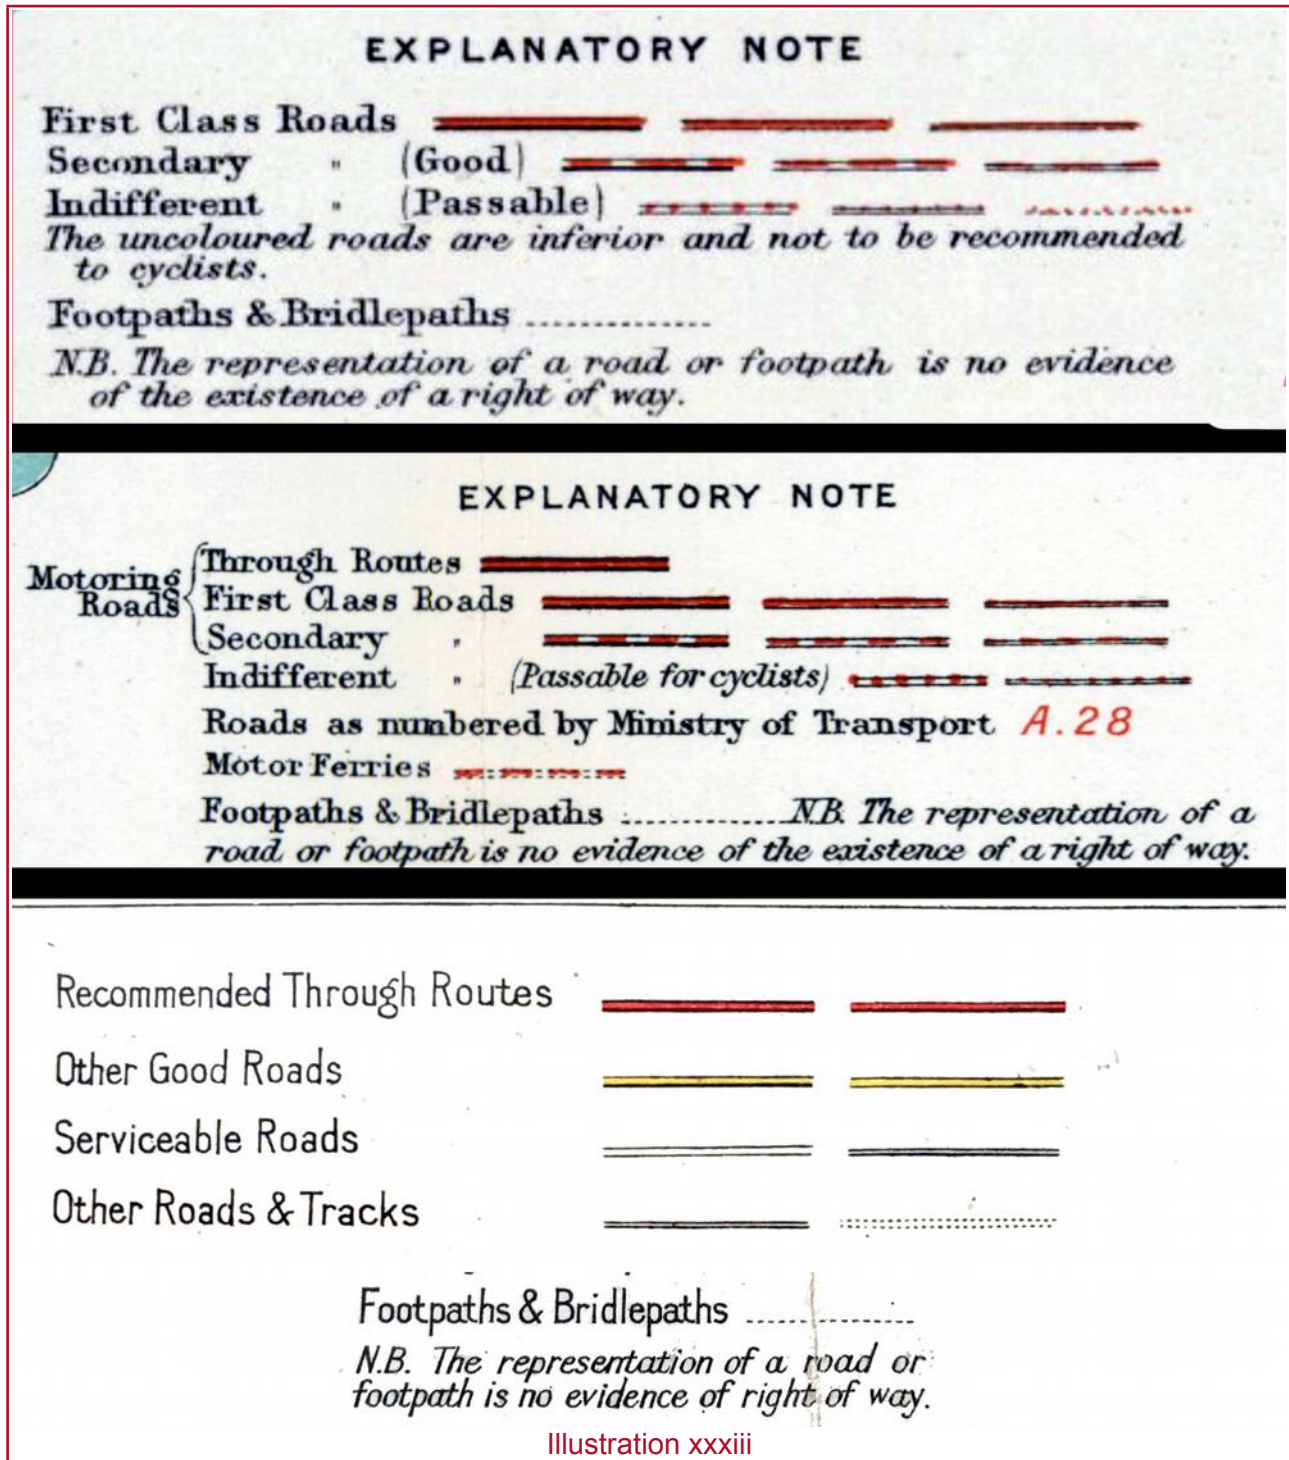 EXPLANATORY NOTE
First Class Roads
Secondary " (Good)
Indifferent " (Passable)
The uncoloured roads are inferior and not to be recommended
to cyclists.
Footpaths & Bridlepaths
N.B. The representation of a road or footpath is no evidence
of the existence of a right of way.
EXPLANATORY NOTE
Motoring Roads
Through Routes
First Class Roads
Secondary "
Indifferent " (Passable for cyclists)
Roads as numbered by Ministry of Transport A.28
Motor Ferries
Footpaths & Bridlepaths N.B. The representation of a
road or footpath is no evidence of the existence of a right of way.
Recommended Through Routes
Other Good Roads
Serviceable Roads
Other Roads & Tracks
Footpaths & Bridlepaths
N.B. The representation of a road or
footpath is no evidence of right of way.
Illustration xxxiii